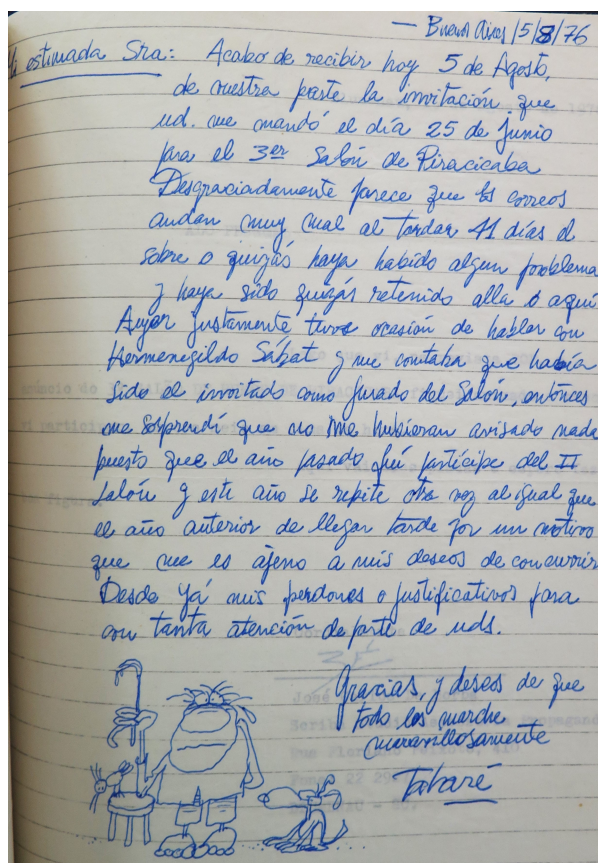 — Buenos Aires / 5/8/76
Mi estimada Sra: Acabo de recibir hoy 5 de Agosto,
de vuestra parte la invitación que
ud. me mandó el día 25 de Junio
para el 3er Salón de Piracicaba
Desgraciadamente parece que los correos
andan muy mal al tardar 41 días el
sobre o quizás haya habido algun problema
y haya sido quizás retenido alla o aquí.
Ayer justamente tuve ocasión de hablar con
Hermenegildo Sábat y me contaba que había
sido el invitado como Jurado del Salón, entónces
me sorprendí que no me hubieran avisado nada
puesto que el año pasado fuí partícipe del II
Salón y este año se repite otra vez al igual que
el año anterior de llegar tarde por un motivo
que me es ajeno a mis deseos de concurrir
Desde yá mis perdones o justificativos para
con tanta atención de parte de uds.
Gracias, y deseos de que
todo les marche
maravillosamente
Tabaré